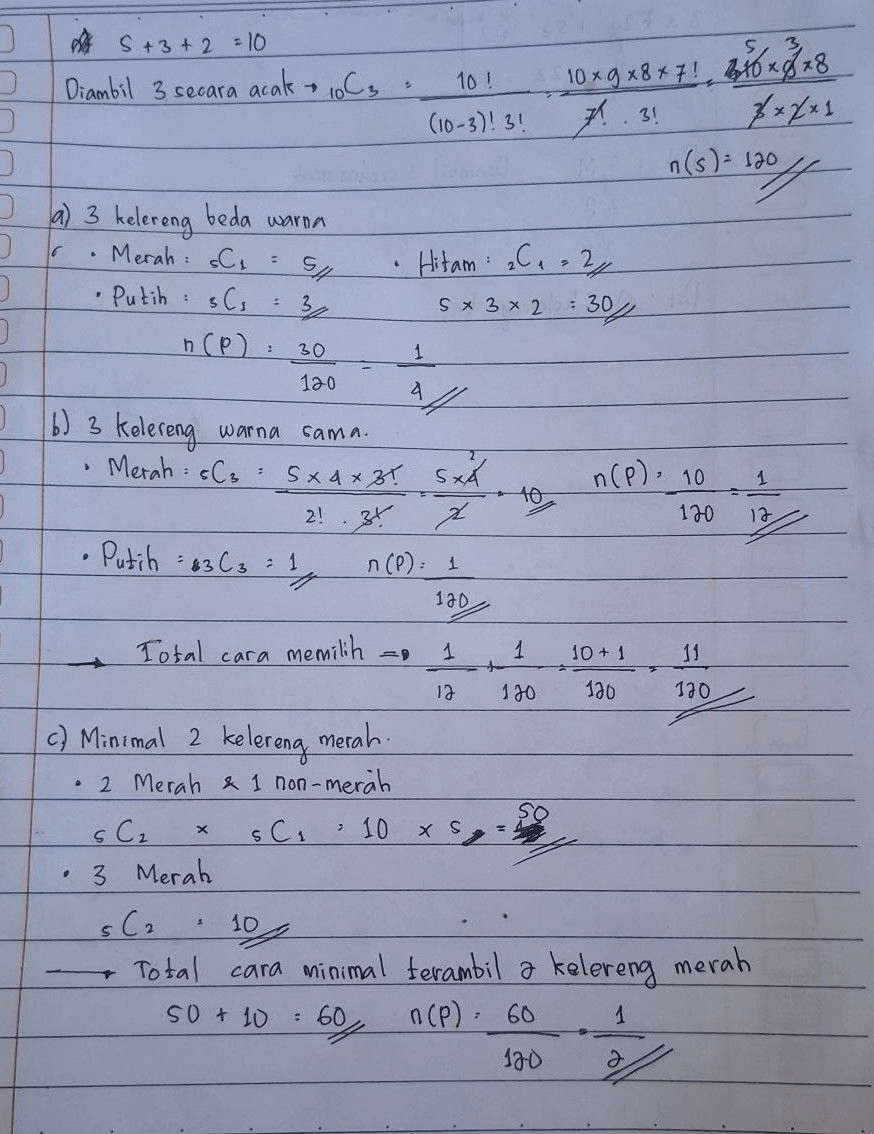 5 + 3 + 2 = 10
Diambil 3 secara acak → ₁₀C₃ = 10! / (10-3)! 3! = 10 × 9 × 8 × 7! / 7! . 3! = 10 × 9 × 8 / 3 × 2 × 1
5 3
n(s) = 120
a) 3 kelereng beda warna
• Merah : ₅C₁ = 5 • Hitam : ₂C₁ = 2
• Putih : ₃C₁ = 3 5 × 3 × 2 = 30
n(P) : 30/120 = 1/4
b) 3 kelereng warna sama.
• Merah : ₅C₃ = 5 × 4 × 3! / 2! . 3! = 5 × 4 / 2 = 10 n(P) = 10/120 = 1/12
2
• Putih = ₃C₃ = 1 n(P) = 1/120
→ Total cara memilih => 1/12 + 1/120 = 10 + 1 / 120 = 11/120
c) Minimal 2 kelereng merah.
• 2 Merah & 1 non-merah
₅C₂ × ₅C₁ = 10 × 5 = 50
• 3 Merah
₅C₂ = 10
→ Total cara minimal terambil 2 kelereng merah
50 + 10 = 60 n(P) = 60/120 = 1/2